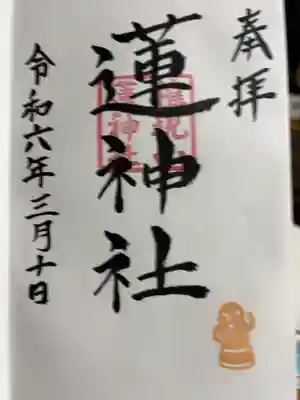 奉拝
蓮神社
令和六年三月十日